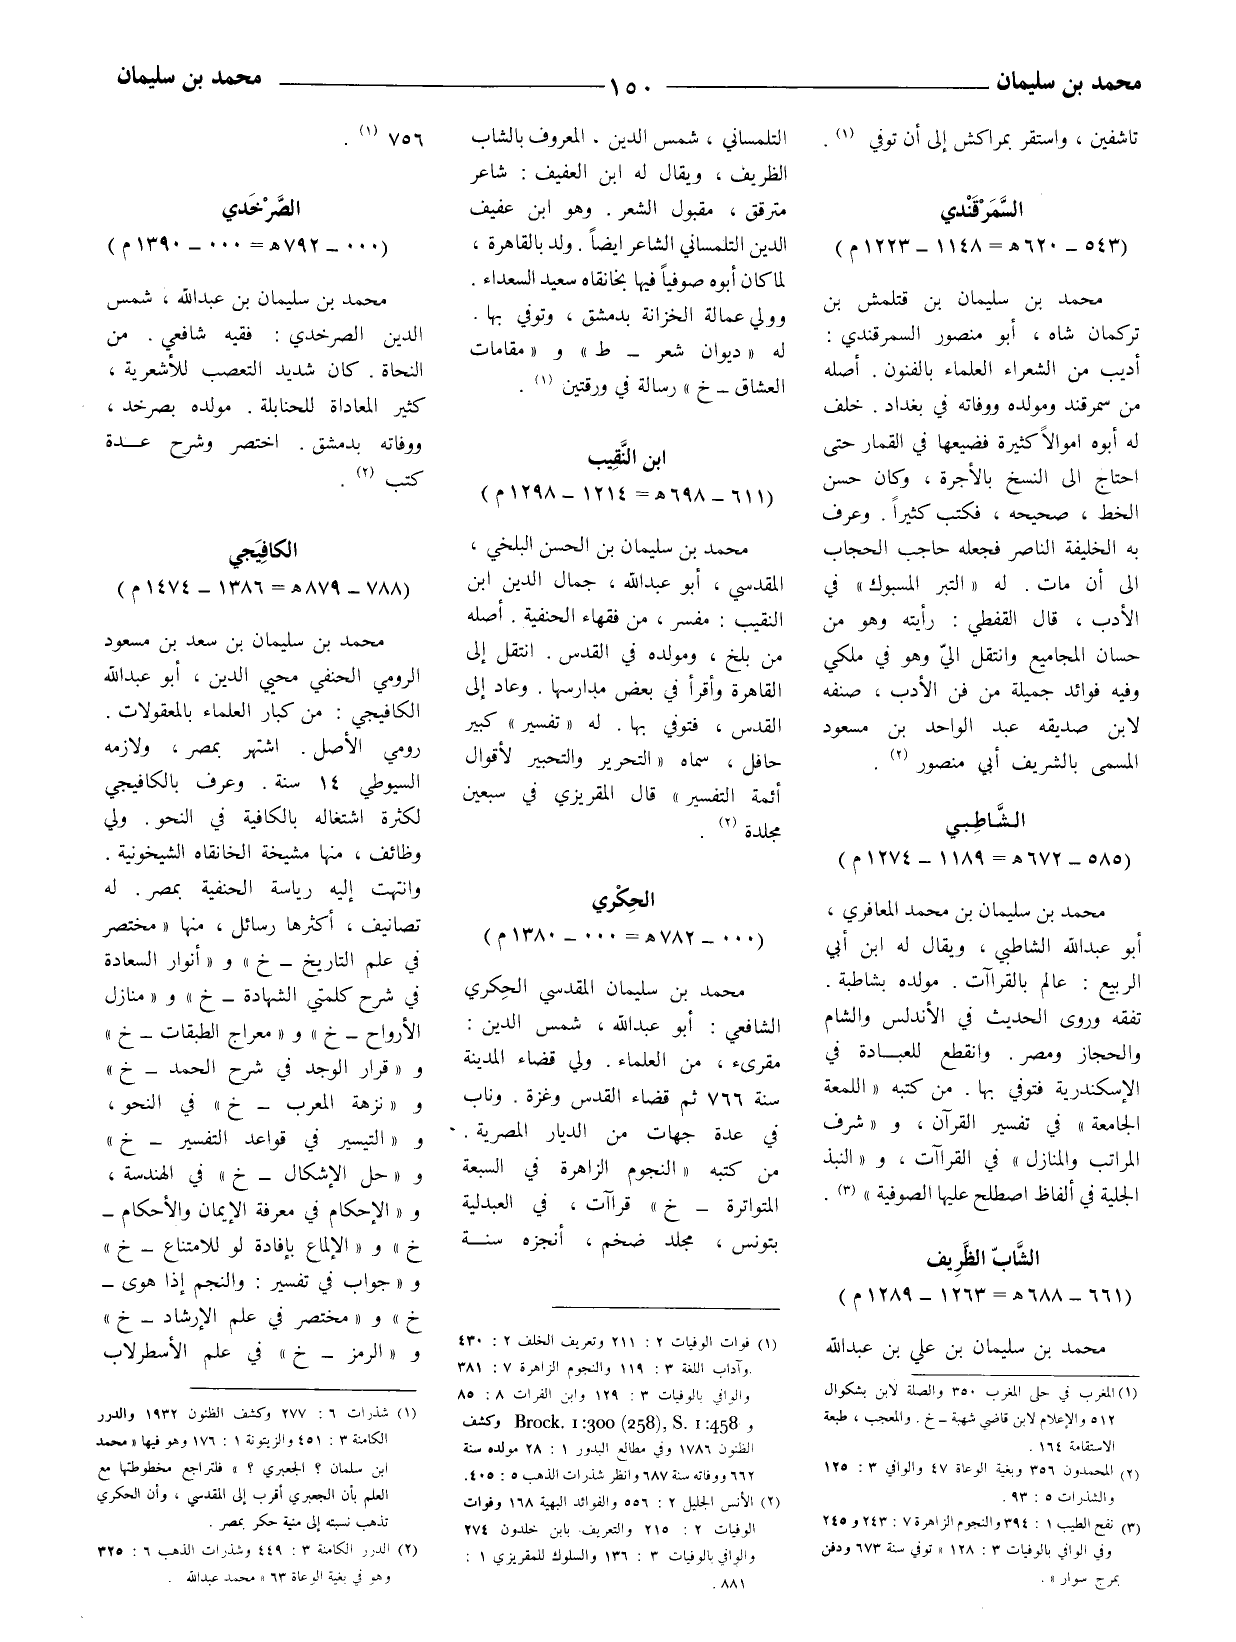 محمد بن سليمان ــــ ١٥٠ ــــ محمد بن سليمان
تاشفين ، واستقر بمراكش إلى أن توفي (١) .
السَّمَرْقَنْدي
(٥٤٣ ــ ٦٢٠ هـ = ١١٤٨ ــ ١٢٢٣ م)
محمد بن سليمان بن قتلمش بن
تركمان شاه ، أبو منصور السمرقندي :
أديب من الشعراء العلماء بالفنون . أصله
من سمرقند ومولده ووفاته في بغداد . خلف
له أبوه اموالاً كثيرة فضيعها في القمار حتى
احتاج الى النسخ بالأجرة ، وكان حسن
الخط ، صحيحه ، فكتب كثيراً . وعرف
به الخليفة الناصر فجعله حاجب الحجاب
الى أن مات . له « التبر المسبوك » في
الأدب ، قال القفطي : رأيته وهو من
حسان المجاميع وانتقل اليّ وهو في ملكي
وفيه فوائد جميلة من فن الأدب ، صنفه
لابن صديقه عبد الواحد بن مسعود
المسمى بالشريف أبي منصور (٢) .
الشَّاطِبي
(٥٨٥ ــ ٦٧٢ هـ = ١١٨٩ ــ ١٢٧٤ م)
محمد بن سليمان بن محمد المعافري ،
أبو عبدالله الشاطبي ، ويقال له ابن أبي
الربيع : عالم بالقراآت . مولده بشاطبة .
تفقه وروى الحديث في الأندلس والشام
والحجاز ومصر . وانقطع للعبـــادة في
الإسكندرية فتوفي بها . من كتبه « اللمعة
الجامعة » في تفسير القرآن ، و « شرف
المراتب والمنازل » في القراآت ، و « النبذ
الجلية في ألفاظ اصطلح عليها الصوفية » (٣) .
الشَّابّ الظَّرِيف
(٦٦١ ــ ٦٨٨ هـ = ١٢٦٣ ــ ١٢٨٩ م)
محمد بن سليمان بن علي بن عبدالله
(١) المغرب في حلى المغرب ٣٥٠ والصلة لابن بشكوال
٥١٢ والإعلام لابن قاضي شهبة ــ خ . والمعجب ، طبعة
الاستقامة ١٦٤ .
(٢) المحمدون ٣٥٦ وبغية الوعاة ٤٧ والوافي ٣ : ١٢٥
والشذرات ٥ : ٩٣ .
(٣) نفح الطيب ١ : ٣٩٤ والنجوم الزاهرة ٧ : ٢٤٣ و ٢٤٥
وفي الوافي بالوفيات ٣ : ١٢٨ « توفي سنة ٦٧٣ ودفن
بمرج سوار » .
التلمساني ، شمس الدين . المعروف بالشاب
الظريف ، ويقال له ابن العفيف : شاعر
مترقق ، مقبول الشعر . وهو ابن عفيف
الدين التلمساني الشاعر ايضاً . ولد بالقاهرة ،
لما كان أبوه صوفياً فيها بخانقاه سعيد السعداء .
وولي عمالة الخزانة بدمشق ، وتوفي بها .
له « ديوان شعر ــ ط » و « مقامات
العشاق ــ خ » رسالة في ورقتين (١) .
ابن النَّقِيب
(٦١١ ــ ٦٩٨ هـ = ١٢١٤ ــ ١٢٩٨ م)
محمد بن سليمان بن الحسن البلخي ،
المقدسي ، أبو عبدالله ، جمال الدين ابن
النقيب : مفسر ، من فقهاء الحنفية . أصله
من بلخ ، ومولده في القدس . انتقل إلى
القاهرة وأقرأ في بعض مدارسها . وعاد إلى
القدس ، فتوفي بها . له « تفسير » كبير
حافل ، سماه « التحرير والتحبير لأقوال
أئمة التفسير » قال المقريزي في سبعين
مجلدة (٢) .
الحِكْري
(٠٠٠ ــ ٧٨٢ هـ = ٠٠٠ ــ ١٣٨٠ م)
محمد بن سليمان المقدسي الحِكري
الشافعي : أبو عبدالله ، شمس الدين :
مقرىء ، من العلماء . ولي قضاء المدينة
سنة ٧٦٦ ثم قضاء القدس وغزة . وناب
في عدة جهات من الديار المصرية .
من كتبه « النجوم الزاهرة في السبعة
المتواترة ــ خ » قراآت ، في العبدلية
بتونس ، مجلد ضخم ، أنجزه سنــة
(١) فوات الوفيات ٢ : ٢١١ وتعريف الخلف ٢ : ٤٣٠
وآداب اللغة ٣ : ١١٩ والنجوم الزاهرة ٧ : ٣٨١
والوافي بالوفيات ٣ : ١٢٩ وابن الفرات ٨ : ٨٥
و Brock. 1:300 (258), S. 1:458 وكشف
الظنون ١٧٨٦ وفي مطالع البدور ١ : ٢٨ مولده سنة
٦٦٢ ووفاته سنة ٦٨٧ وانظر شذرات الذهب ٥ : ٤٠٥.
(٢) الأنس الجليل ٢ : ٥٥٦ والفوائد البهية ١٦٨ وفوات
الوفيات ٢ : ٢١٥ والتعريف بابن خلدون ٢٧٤
والوافي بالوفيات ٣ : ١٣٦ والسلوك للمقريزي ١ :
٨٨١ .
٧٥٦ (١) .
الصَّرْخَدي
(٠٠٠ ــ ٧٩٢ هـ = ٠٠٠ ــ ١٣٩٠ م)
محمد بن سليمان بن عبدالله ، شمس
الدين الصرخدي : فقيه شافعي . من
النحاة . كان شديد التعصب للأشعرية ،
كثير المعاداة للحنابلة . مولده بصرخد ،
ووفاته بدمشق . اختصر وشرح عـــدة
كتب (٢) .
الكافِيَجي
(٧٨٨ ــ ٨٧٩ هـ = ١٣٨٦ ــ ١٤٧٤ م)
محمد بن سليمان بن سعد بن مسعود
الرومي الحنفي محيي الدين ، أبو عبدالله
الكافيجي : من كبار العلماء بالمعقولات .
رومي الأصل . اشتهر بمصر ، ولازمه
السيوطي ١٤ سنة . وعرف بالكافيجي
لكثرة اشتغاله بالكافية في النحو . ولي
وظائف ، منها مشيخة الخانقاه الشيخونية .
وانتهت إليه رياسة الحنفية بمصر . له
تصانيف ، أكثرها رسائل ، منها « مختصر
في علم التاريخ ــ خ » و « أنوار السعادة
في شرح كلمتي الشهادة ــ خ » و « منازل
الأرواح ــ خ » و « معراج الطبقات ــ خ »
و « قرار الوجد في شرح الحمد ــ خ »
و « نزهة المعرب ــ خ » في النحو ،
و « التيسير في قواعد التفسير ــ خ »
و « حل الإشكال ــ خ » في الهندسة ،
و « الإحكام في معرفة الإيمان والأحكام ــ
خ » و « الإلماع بإفادة لو للامتناع ــ خ »
و « جواب في تفسير : والنجم إذا هوى ــ
خ » و « مختصر في علم الإرشاد ــ خ »
و « الرمز ــ خ » في علم الأسطرلاب
(١) شذرات ٦ : ٢٧٧ وكشف الظنون ١٩٣٢ والدرر
الكامنة ٣ : ٤٥١ والزيتونة ١ : ١٧٦ وهو فيها « محمد
ابن سلمان ؟ الجعبري ؟ » فلتراجع مخطوطتها مع
العلم بأن الجعبري أقرب إلى المقدسي ، وأن الحكري
تذهب نسبته إلى منية حكر بمصر .
(٢) الدرر الكامنة ٣ : ٤٤٩ وشذرات الذهب ٦ : ٣٢٥
وهو في بغية الوعاة ٦٣ « محمد عبدالله .